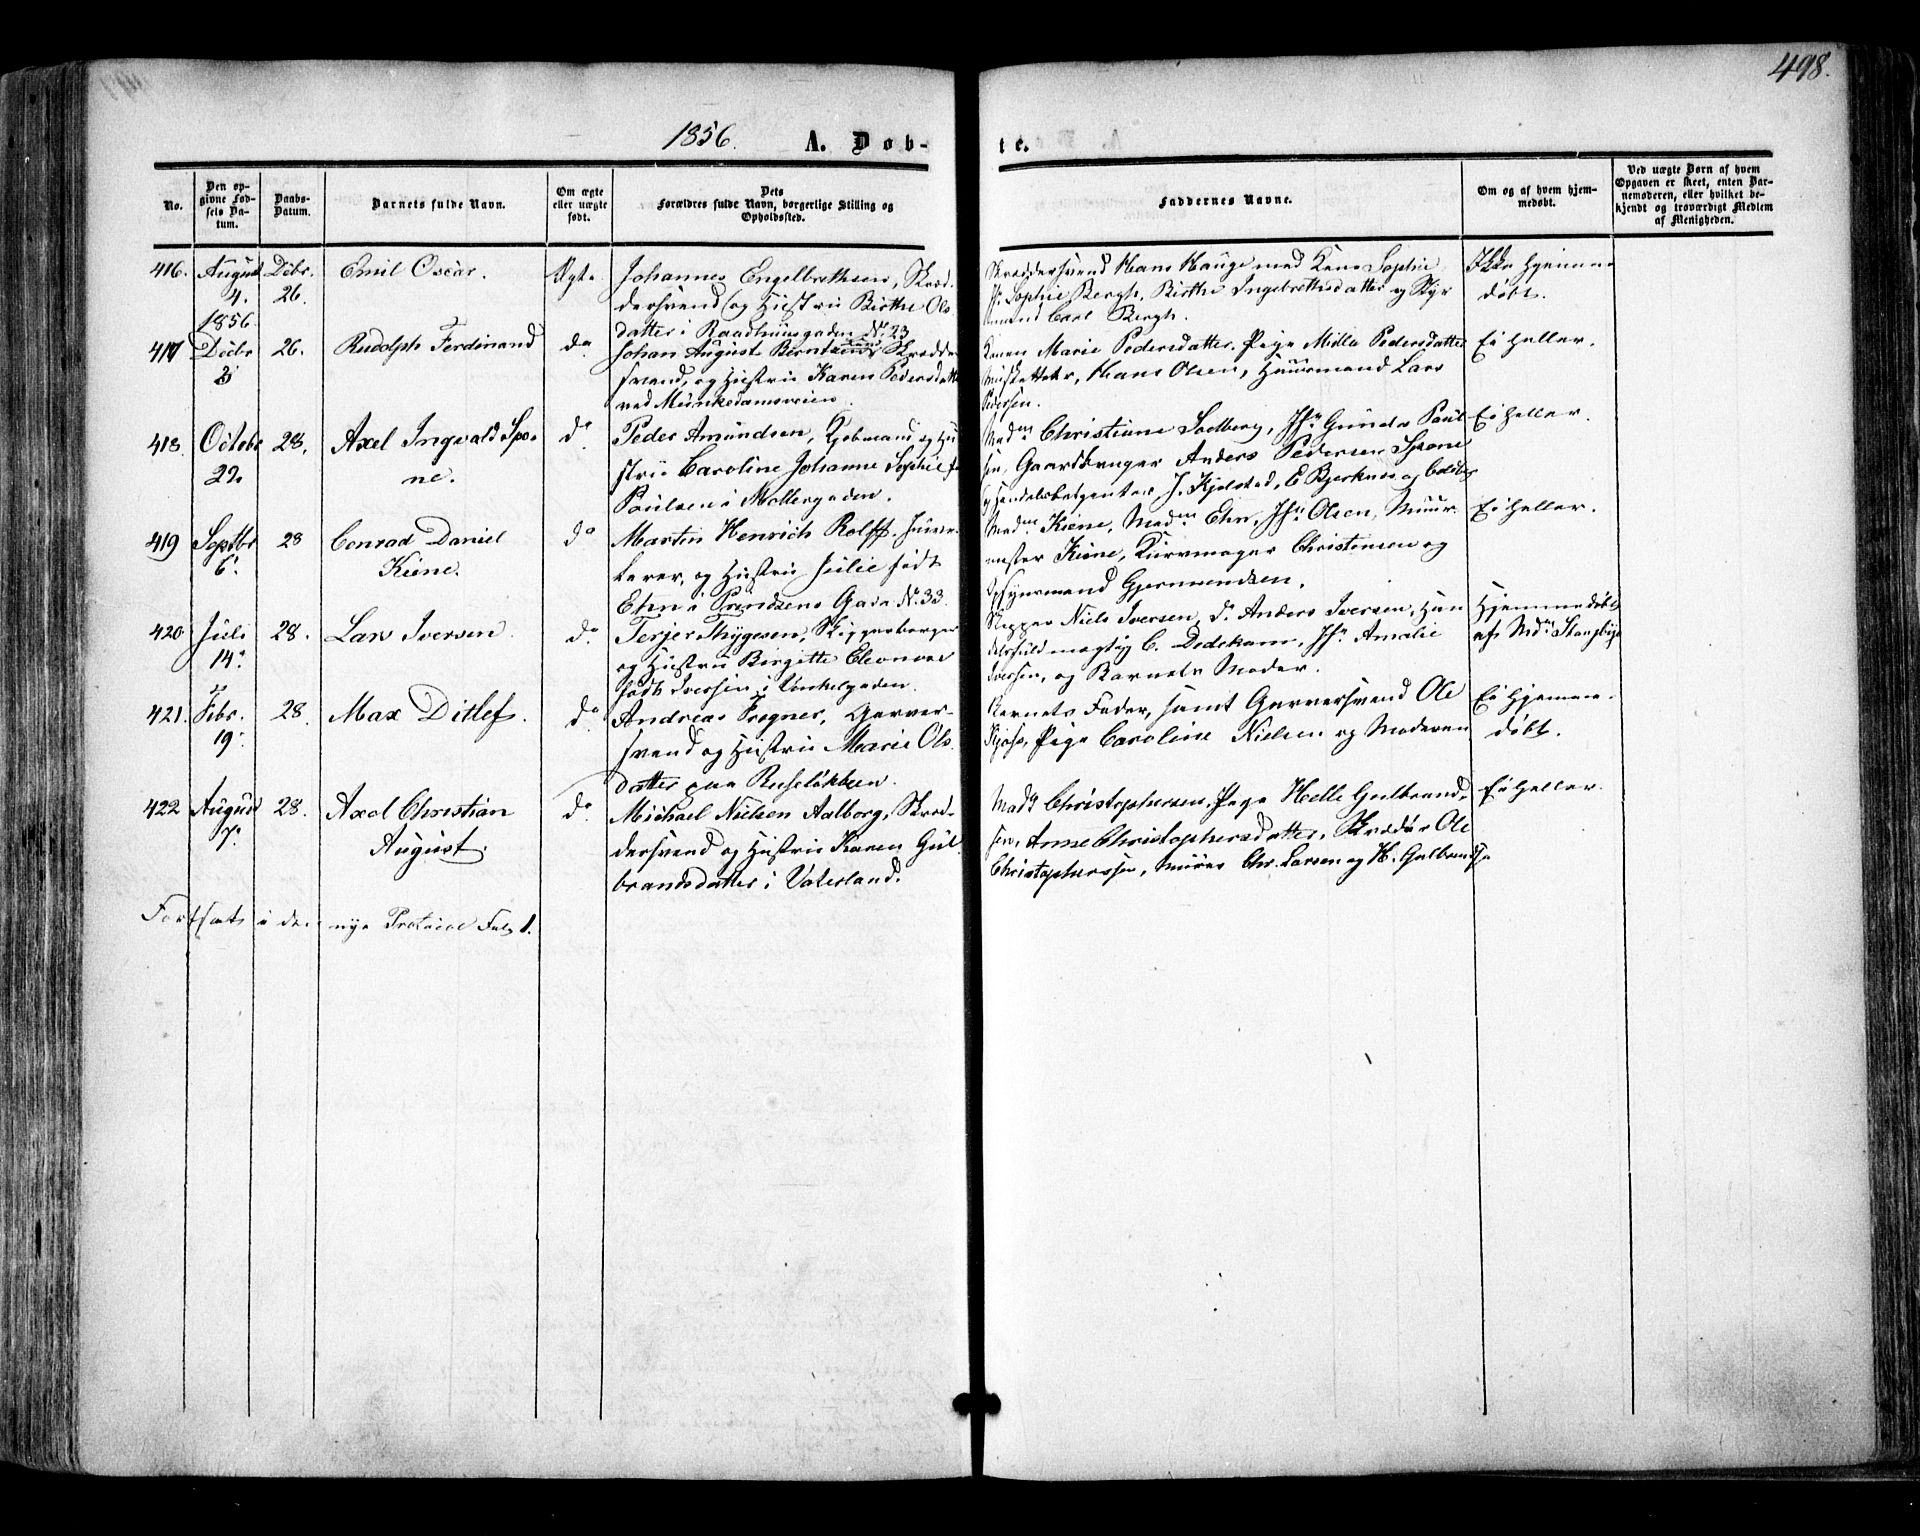 498.
1856. A. Døb-
te.
No.
Den op-
givne Fød-
sels Da-
tum.
Daabs-
Datum.
Barnets fulde Navn.
Om ægte
eller uægte
født.
Dets
Forældres fulde Navn, borgerlige Stilling og
Opholdssted.
Faddernes Navne.
Om og af hvem hjem-
medøbt.
Ved uægte Børn af hvem
Opgaven er skeet, enten Bar-
nemoderen, eller hvilket be-
kjendt og troværdigt Medlem
af Menigheden.
416. August
4.
1856.
Dcbr.
26.
Emil Oscar.
Ægte
Johannes Engelbrethsen, Skræd-
dersvend og Hustru Birthe Ols
datter i Raadhuusgaden No 23
Skræddersvend Hans Hauge med Kone Sophie
Jfr Sophie Bergh, Birthe Ingebrethsdatter og Styr
mand Carl Bergh.
Ikke hjemme
døbt.
417 Dcbr
3
26.
Rudolph Ferdinand
do
Johan August Berntsen, Skrædder
svend, og Hustru Karen Pedersdatter
ved Munkedamsveien.
Konen Marie Pedersdatter, Pige Milla Pedersdatter
Musketteer, Hans Olsen, Huusmand Lars
Pedersen.
Ei heller.
418. Octobr
22
28.
Axel Ingvald Spo-
ne.
do
Peder Amundsen, Kjøbmand og Hu
stru Caroline Johanne Sophie f.
Paulsen i Møllergaden.
Madm Christiane Sodberg, Jfr Gunda Paul
sen, Gaardbruger Anders Pedersen Spone
og Handelsbetjenter, J. Kjelstad, E Bjerknes og
Ei heller.
419 Septbr
6.
28
Conrad Daniel
Kiene.
do
Martin Henrich Rolff,
og Hustru Julie født
Ehn i Prindsens Gade No 33.
Madm Kiene, Madm Ehn, Jfr Olsen, Muur-
mester Kiene, Kurvmager Christensen og
Opsynsmand Gjermundsen.
Ei heller.
420. Juli
14.
28.
Lars Iversen.
do
Terjer Thygesen, Skipperborger
og Hustru Birgitte Eleonore
født Iversen i Vinkelgaden.
Skipper Niels Iversen, do Anders Iversen, Han
delsfuldmægtig C. Dedekam, Jfr Amalie
Iversen, og Barnets Moder.
Hjemmedøbt
af Mdm Stangbye
421. Febr.
19.
28.
Max Ditlef.
do
Andreas Pregner, Garver-
svend og Hustru Marie Ols
datter paa Ruseløkken.
Barnets Fader, samt Garversvend Ole
Pige Caroline Nielsen og Moderen
Ei hjemme-
døbt.
422 August
7.
28.
Axel Christian
August.
do
Michael Nielsen Aalborg, Skræd-
dersvend og Hustru Karen Gul
brandsdatter i Vaterland.
Madm Christophersen, Pige Helle Gulbrand-
sen, Anne Christophersdatter, Skræder Ole
Christophersen, Murer Chr. Larsen og H. Gulbrandsen
Ei heller.
Fortsat i den nye Protocol Fol. 1.